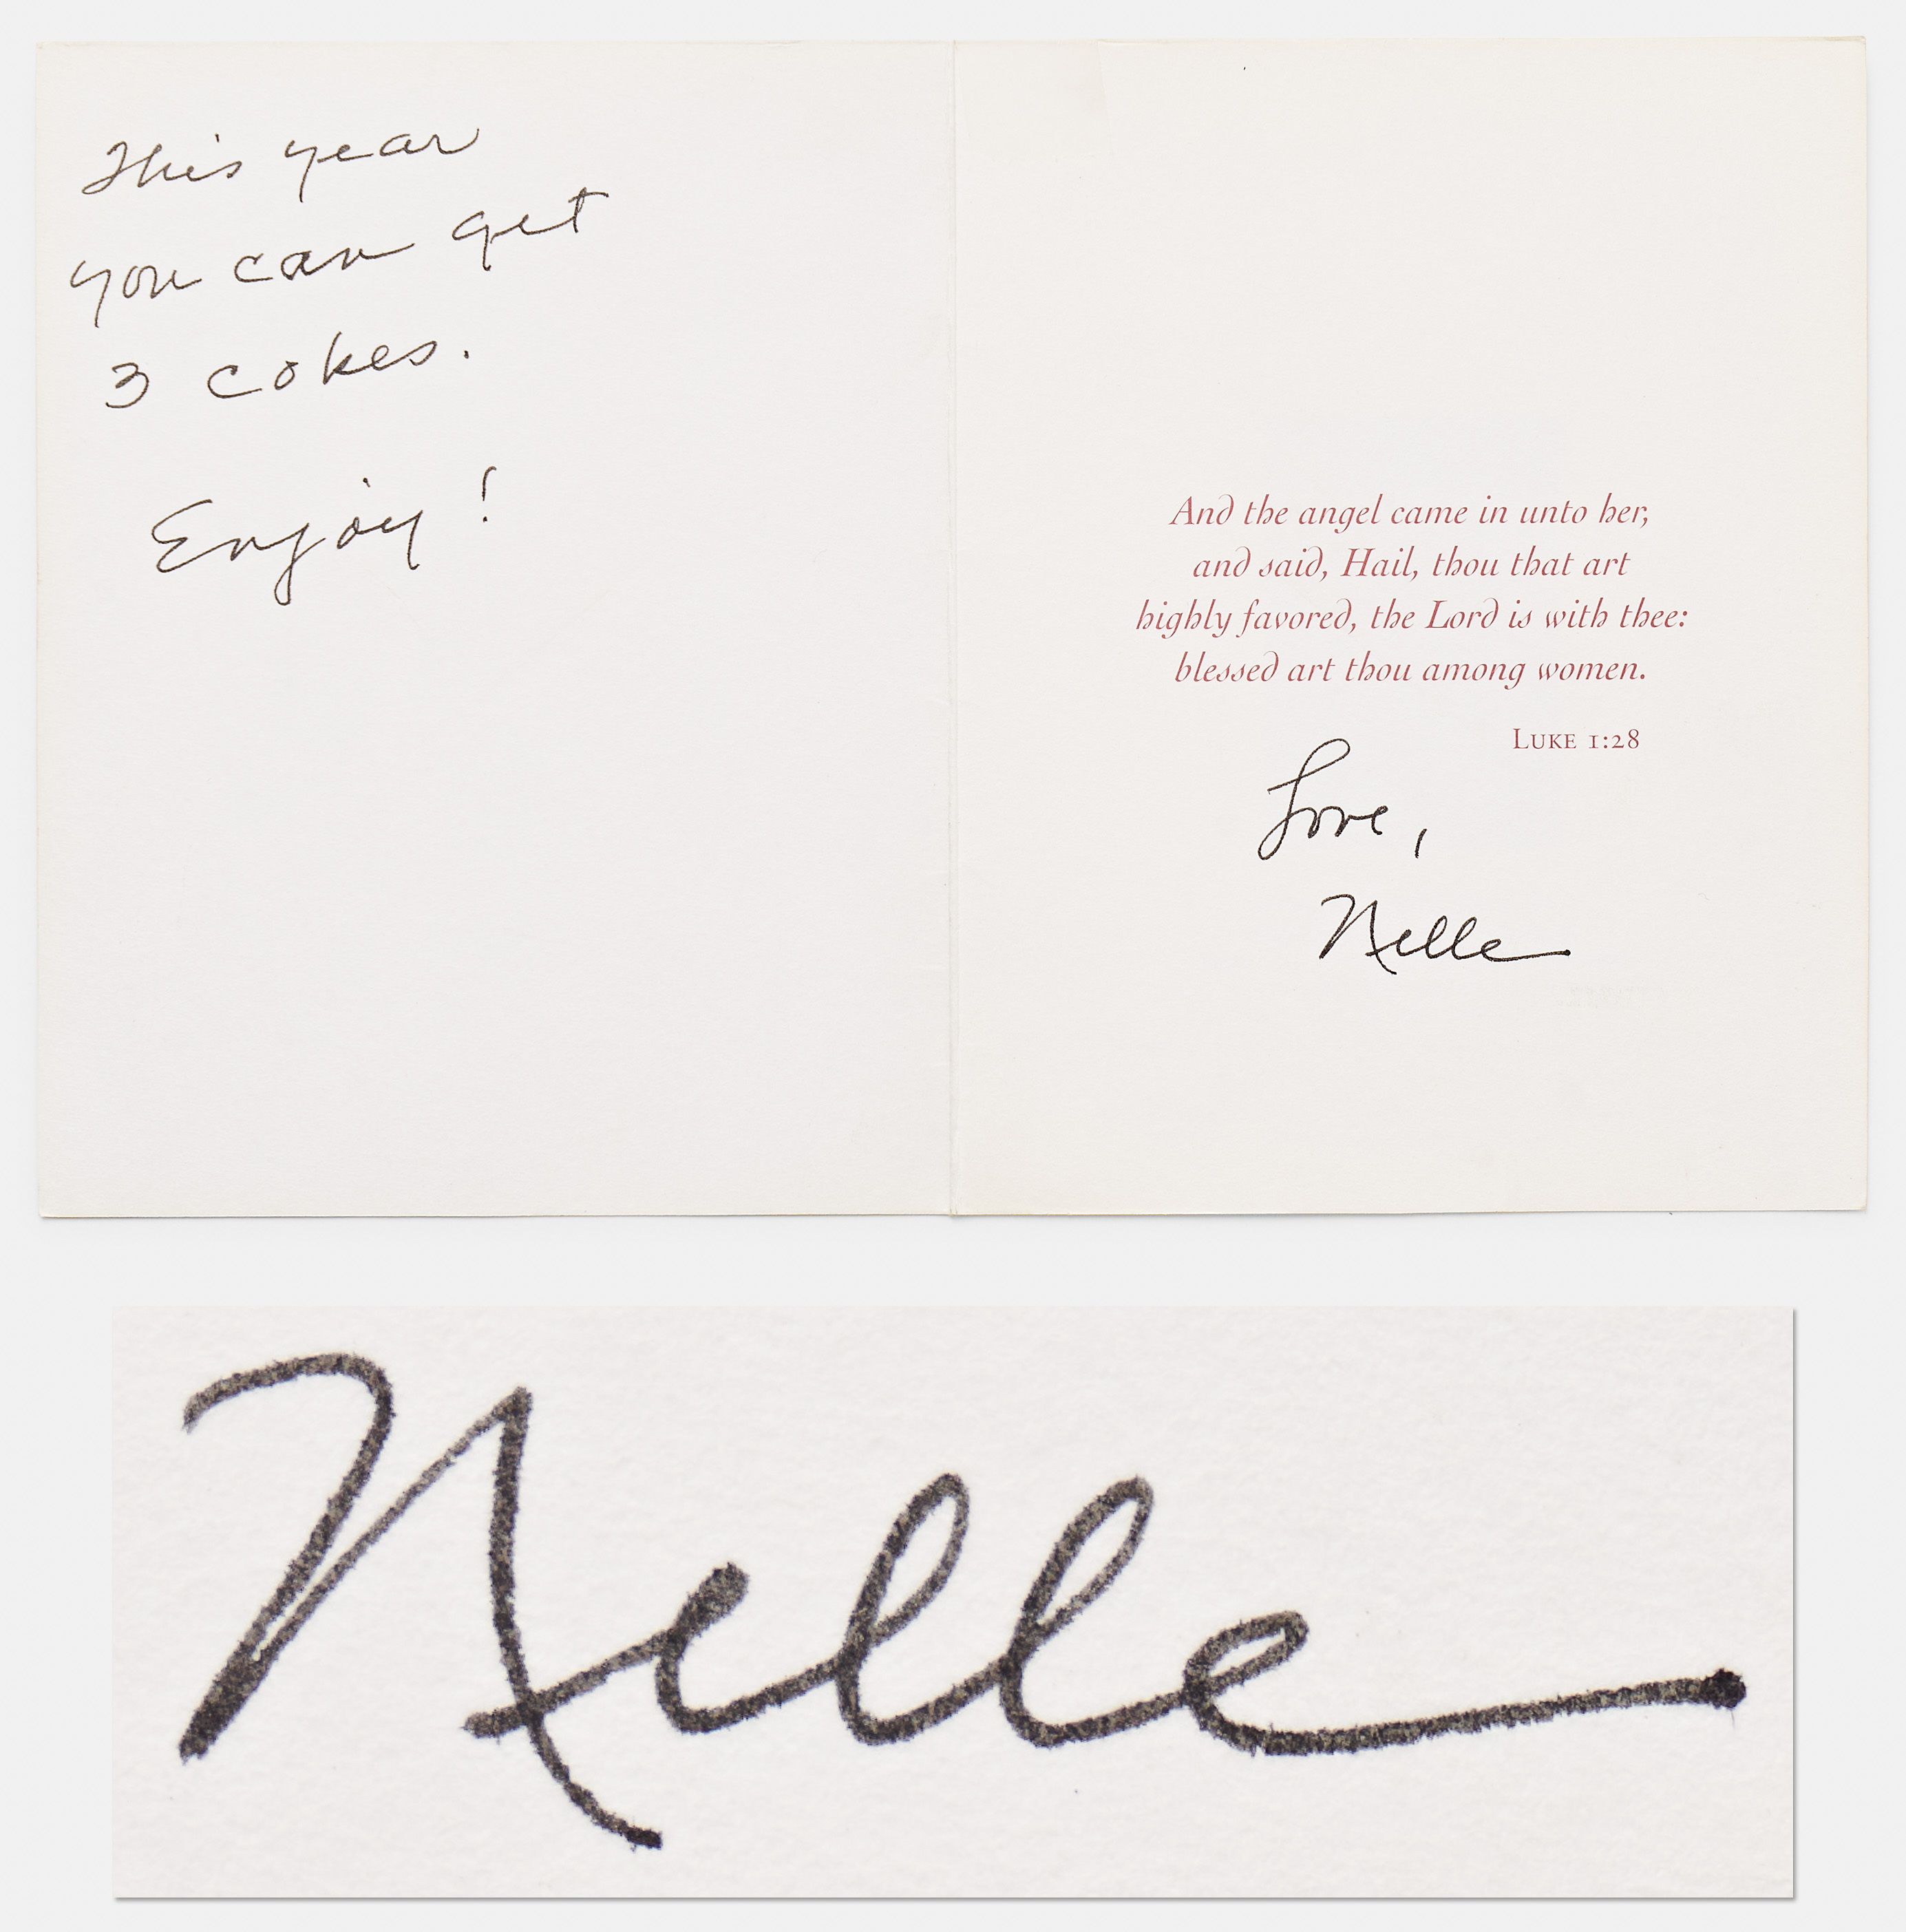 This year
you can get
3 cokes.
Enjoy!
And the angel came in unto her,
and said, Hail, thou that art
highly favored, the Lord is with thee:
blessed art thou among women.
Luke 1:28
Love,
Nelle
Nelle